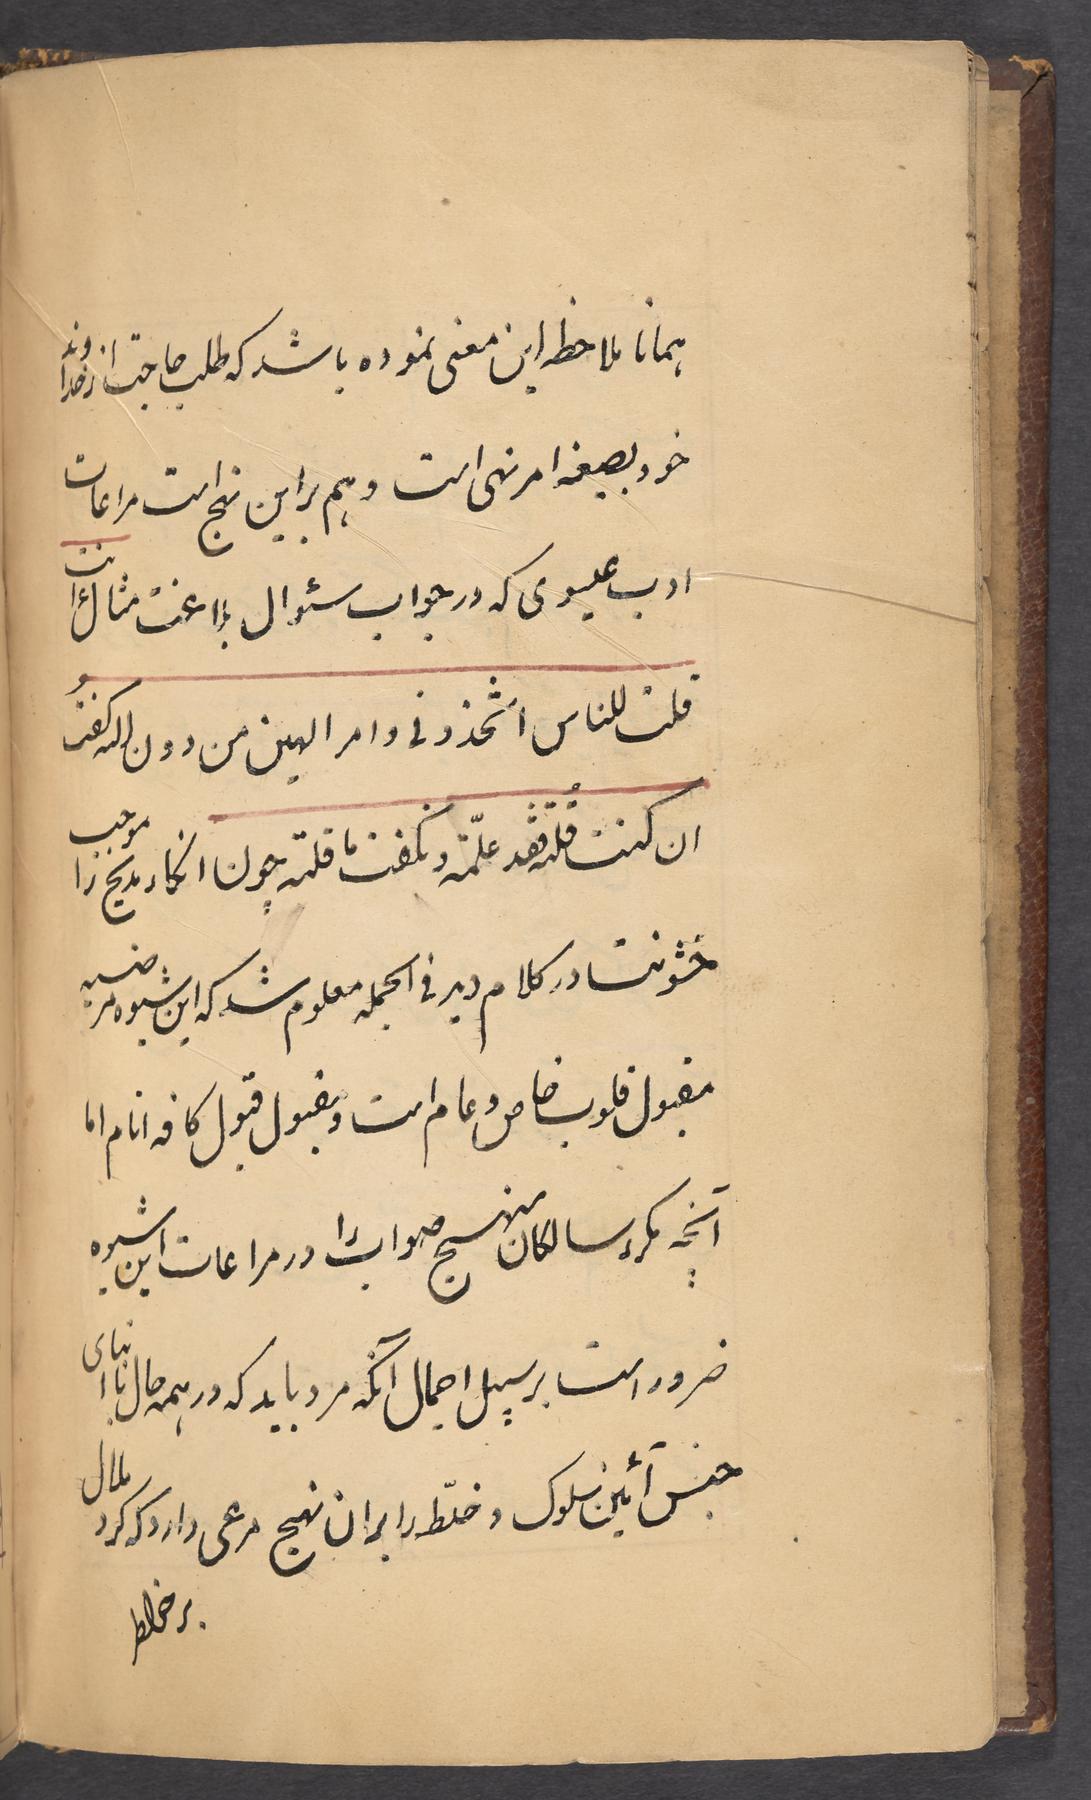 همانا ملاحظه این معنی نموده باشد که طلب حاجت از خداوند
خود بصیغه امر نهی است و هم براین نهج است مراعات
ادب عیسوی که در جواب سئوال بلاغت مثال أانت
قلت للناس اتّخذونی و امر الهین من دون الله کفتُ
ان کنت قُلته فقد علمّته و نکفت ما قلته چون انکار صریح را موجب
خشونت در کلام دید فی الجمله معلوم شد که این شیوه مرضیه
مقبول قلوب خاص و عام است و مقبول قبول کافه انام اما
آنچه مکر سالکان منهج صواب را در مراعات این شیوه
ضرور است بر سپیل اجمال آنکه مرد باید که در همه حال با ابنای
جنس آئین سلوک و خلّط را بران نهج مرعی دارد که کرد ملال
بر خواطر